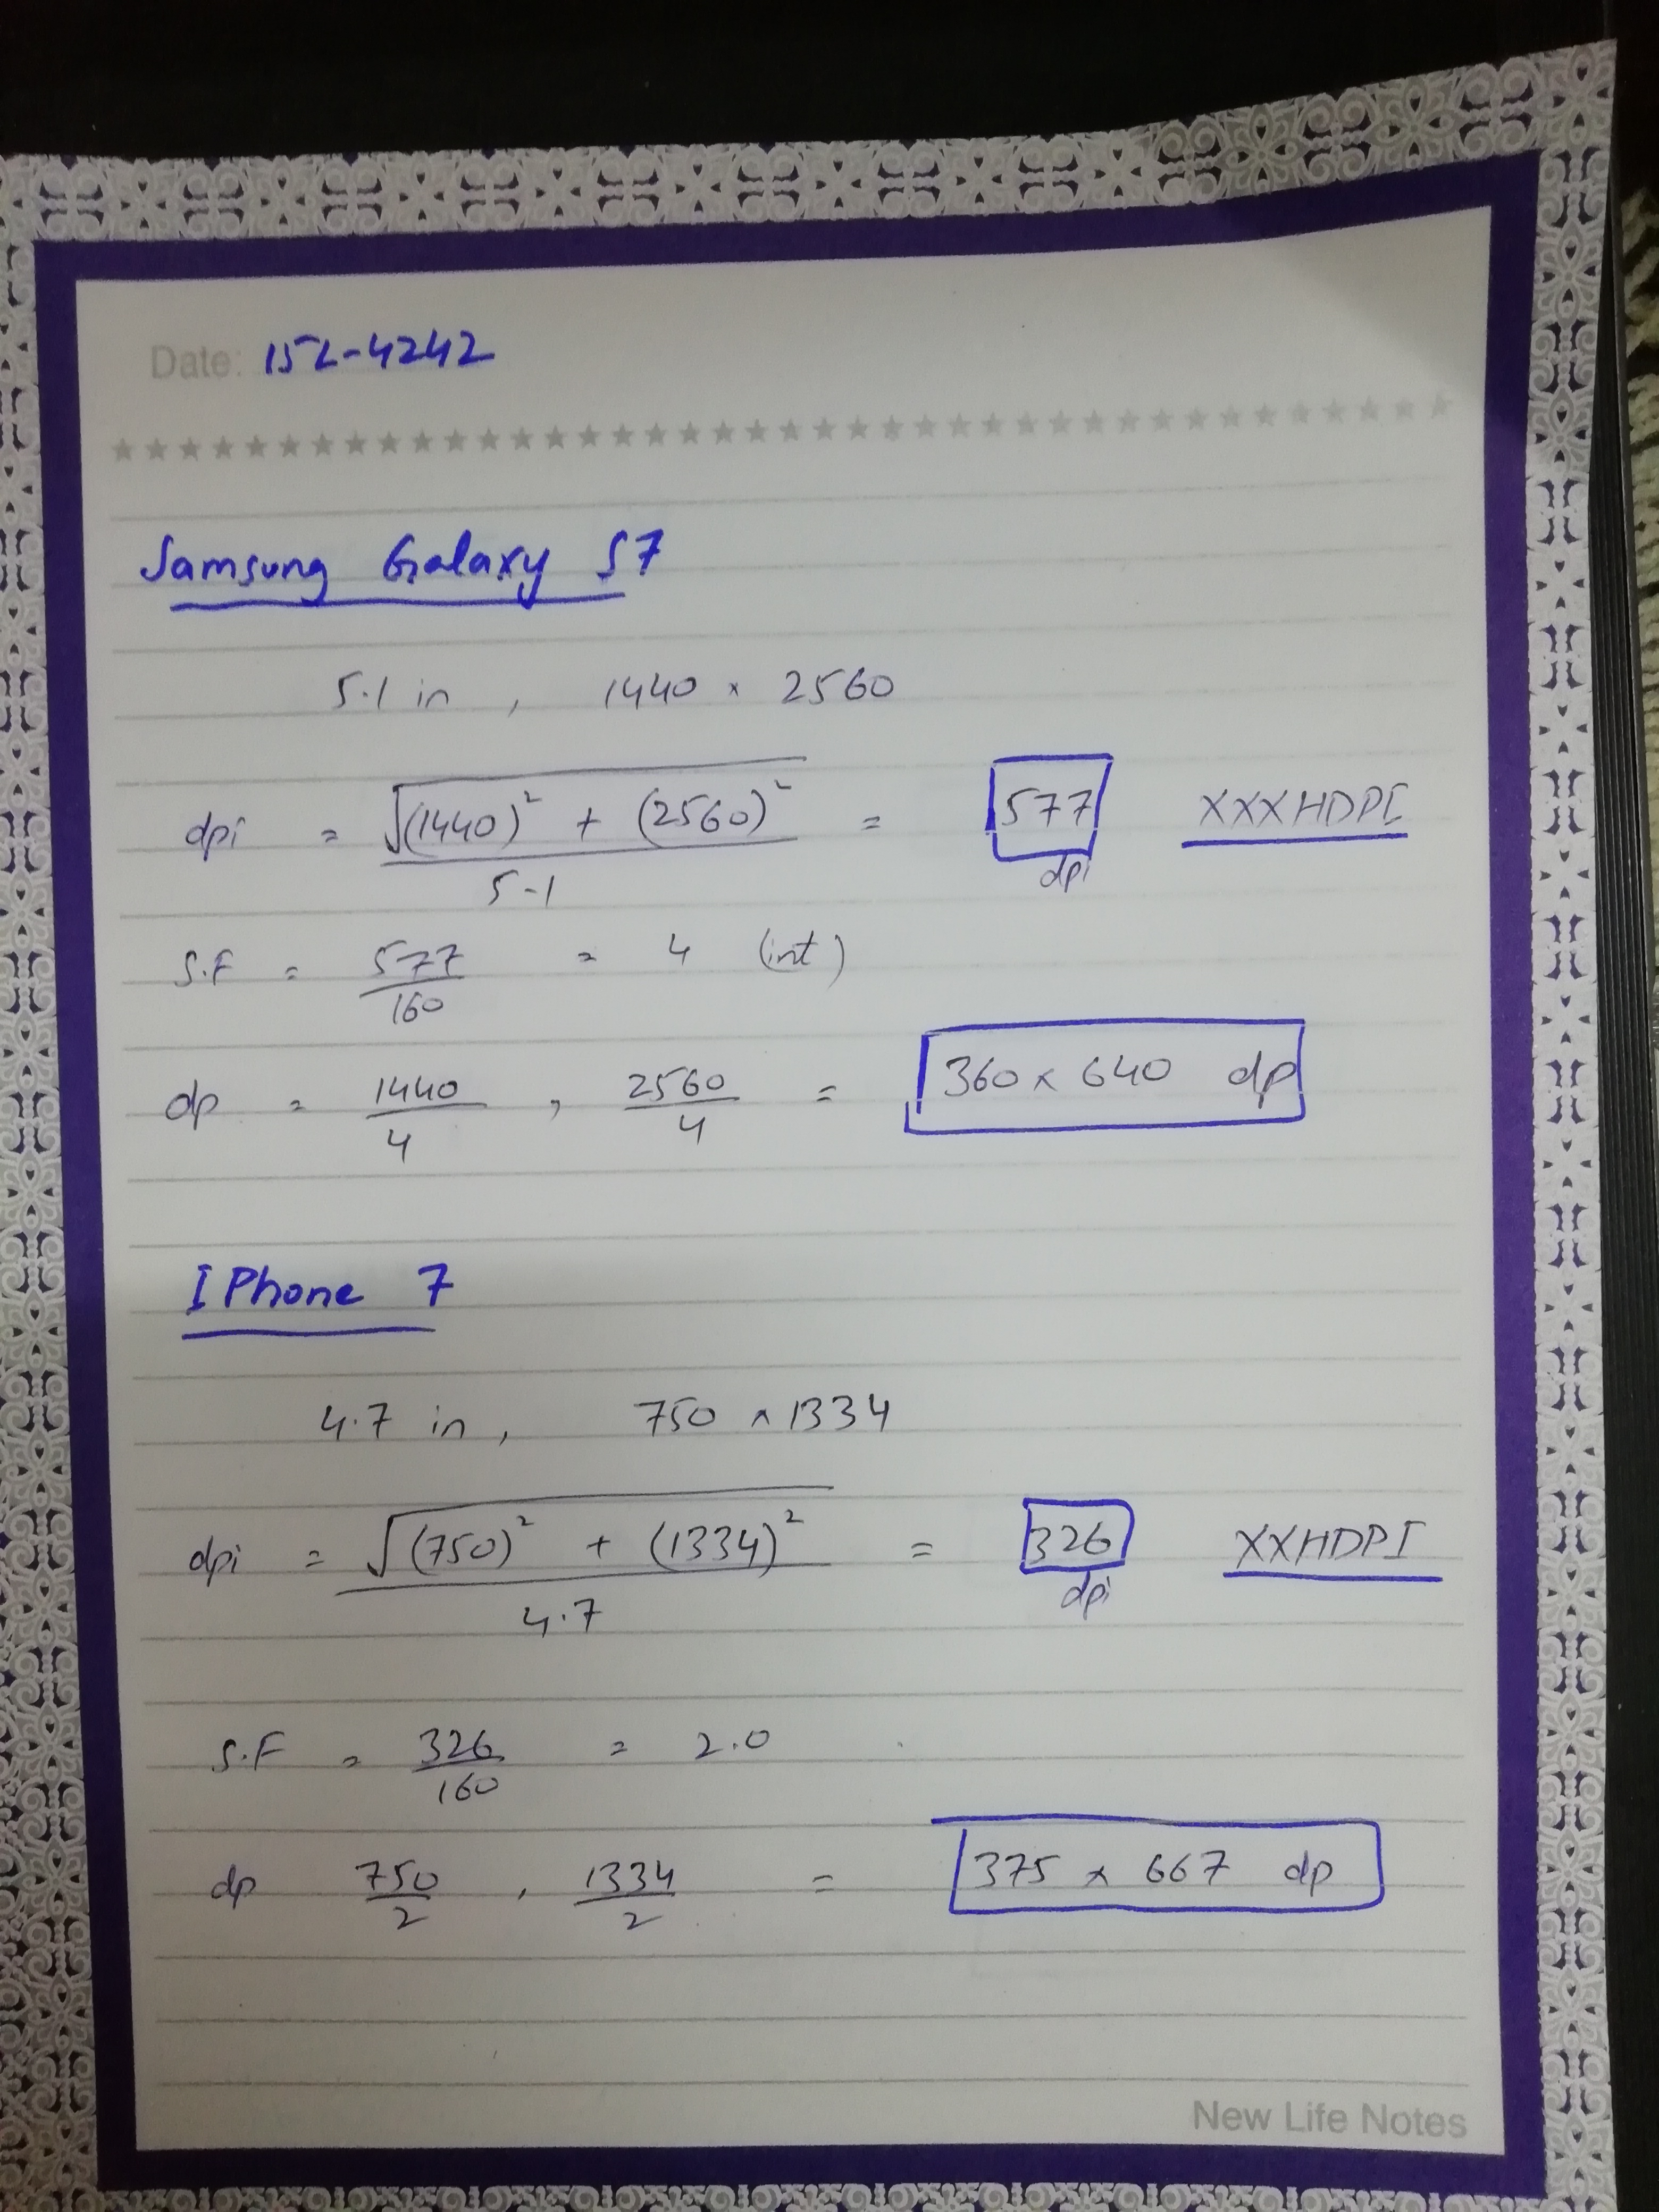 Date: 15L-4242
Samsung Galaxy S7
5.1 in , 1440 × 2560
dpi = √(1440)² + (2560)² / 5.1 = 577 dpi XXXHDPI
S.F = 577/160 = 4 (int)
dp = 1440/4 , 2560/4 = 360 × 640 dp
IPhone 7
4.7 in, 750 × 1334
dpi = √(750)² + (1334)² / 4.7 = 326 dpi XXHDPI
S.F = 326/160 = 2.0
dp 750/2 , 1334/2 = 375 × 667 dp
New Life Notes